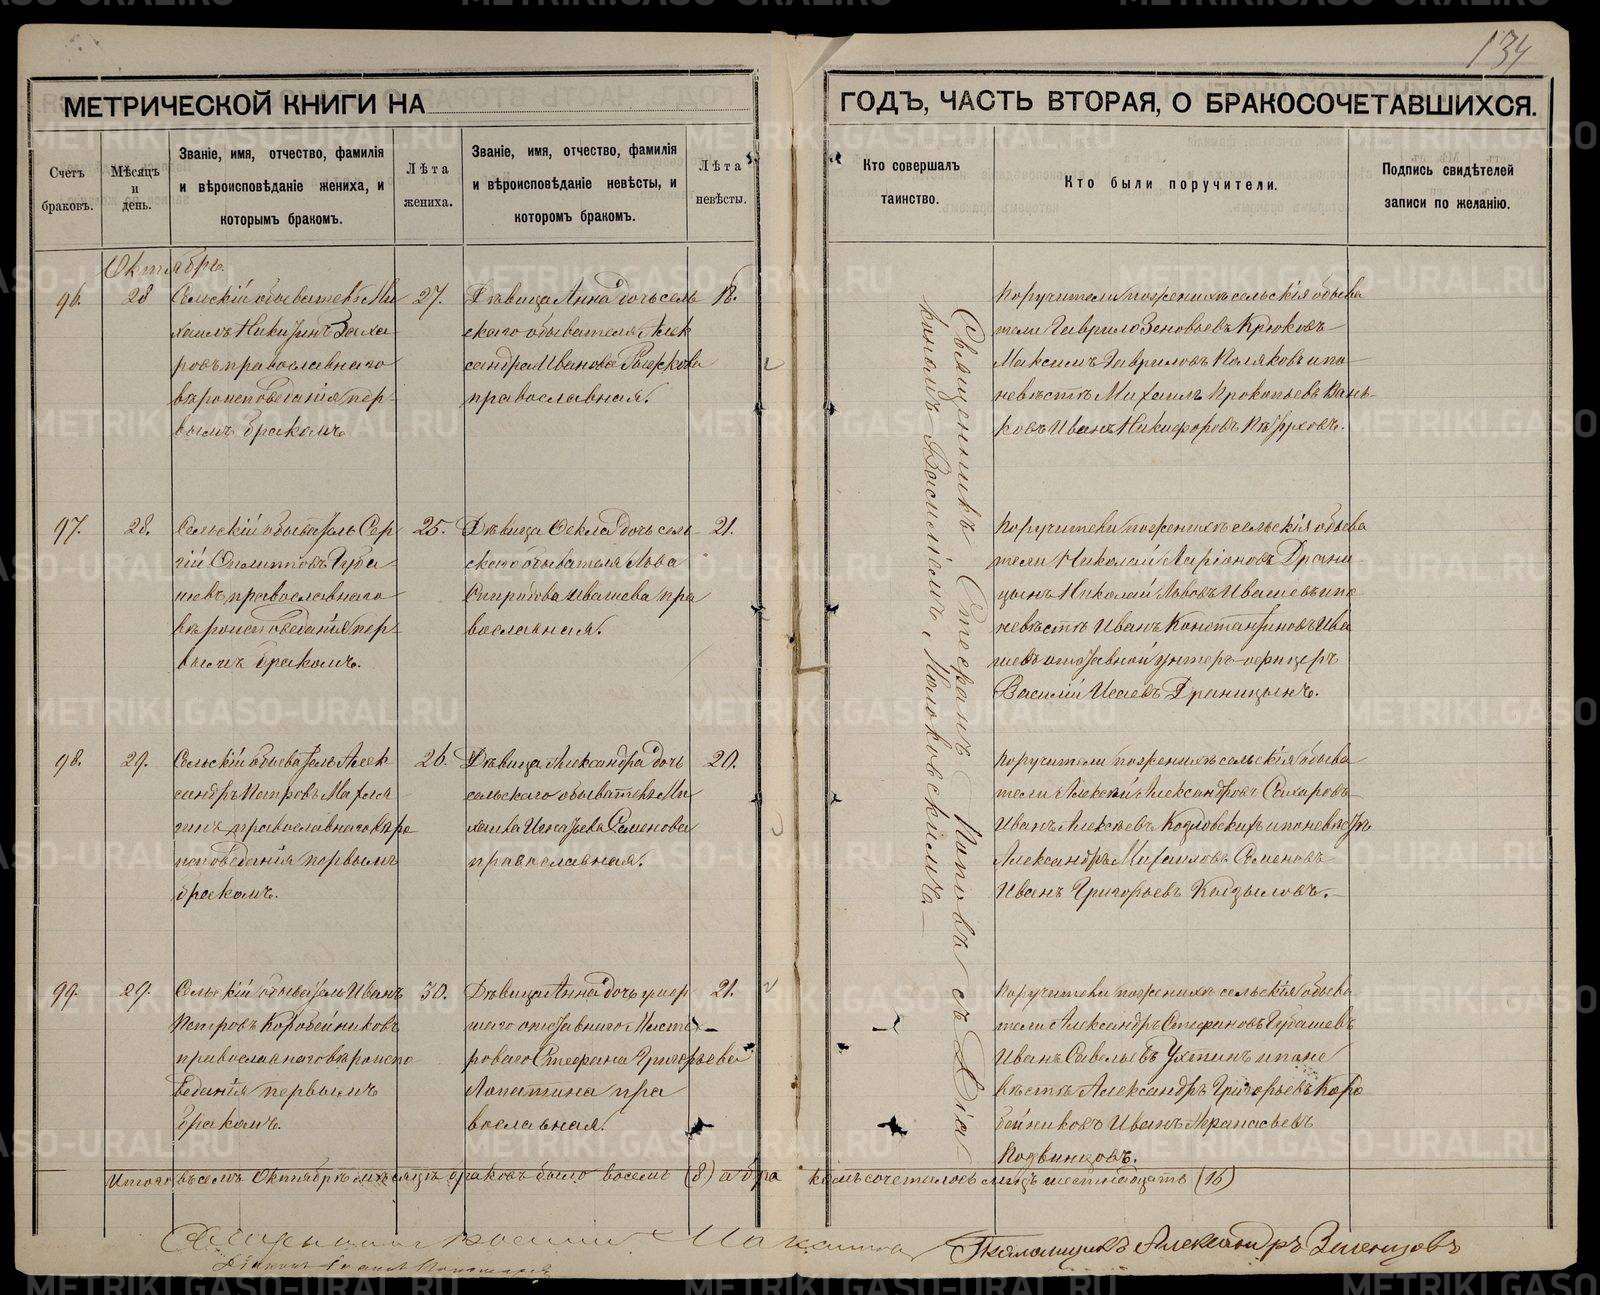 134
МЕТРИЧЕСКОЙ КНИГИ НА
ГОДЪ, ЧАСТЬ ВТОРАЯ, О БРАКОСОЧЕТАВШИХСЯ.
Счетъ
браковъ.
Мѣсяцъ
и
день.
Званіе, имя, отчество, фамилія
и вѣроисповѣданіе жениха, и
которымъ бракомъ.
Лѣта
жениха.
Званіе, имя, отчество, фамилія
и вѣроисповѣданіе невѣсты, и
которомъ бракомъ.
Лѣта
невѣсты.
Кто совершалъ
таинство.
Кто были поручители.
Подпись свидѣтелей
записи по желанію.
Октябрь.
96.
28
Сельскій обыватель Ми
хаилъ Никитинъ Заха
ровъ православнаго
вѣроисповѣданія пер-
вымъ бракомъ.
27.
Дѣвица Анна дочь сель
скаго обывателя Алек
сандра Иванова
православная.
18.
Поручители по женихѣ сельскія обыва
тели Гаврило Зеновьевъ Крюковъ
Максимъ Гавриловъ Поляковъ и по
невѣстѣ Михаилъ Прокопьевъ Вань-
ковъ Иванъ Никифоровъ
97.
28.
Сельскій обыватель Сер
гій
шевъ православнаго
вѣроисповѣданія пер-
вымъ бракомъ.
25.
Дѣвица Ѳекла дочь сель
скаго обывателя Льва
Спиридова Ивашева пра
вославная.
21.
Поручители по женихѣ сельскія обыва
тели Николай Ларіоновъ Драни
цынъ Николай Львовъ Ивашевъ и по
невѣстѣ Иванъ Константиновъ Ива
шевъ отставной унтеръ-офицеръ
Василій Исаевъ Драницынъ.
98.
29.
Сельскій обыватель Алек
сандръ Петровъ Махля
гинъ православнаго вѣро
исповѣданія первымъ
бракомъ.
26.
Дѣвица Александра дочь
сельскаго обывателя Ми
хаила Игнатьева Семенова
православная.
20.
Поручители по женихѣ сельскія обыва
тели Алексѣй Александровъ Сахаровъ
Иванъ Алексѣевъ Козловскихъ и по невѣстѣ
Александръ Михаиловъ Семеновъ
Иванъ Григорьевъ Кадзыловъ.
99.
29.
Сельскій обыватель Иванъ
Петровъ Коробейниковъ
православнаго вѣроиспо
веданія первымъ
бракомъ.
30.
Дѣвица Анна дочь умер
шаго отставнаго Масте
роваго Стефана Григорьева
Лопатина пра
вославная.
21.
Поручители по женихѣ сельскія обыва
тели Александръ Стефановъ
Иванъ Савельевъ Ухтинъ и по не
вѣстѣ Александръ Григорьевъ Коро
бейниковъ Иванъ Афанасьевъ
Подвинцовъ.
Священникъ Стефанъ Поповъ съ Діа-
кономъ Василіемъ Малаховскимъ.
Итого въ семъ Октябрѣ мѣсяцѣ браковъ было восемь (8) а бра
комъ сочеталось лицъ шестнадцать (16)
Священникъ Василій
Діаконъ
Псаломщикъ Александръ
METRIKI.GASO-URAL.RU